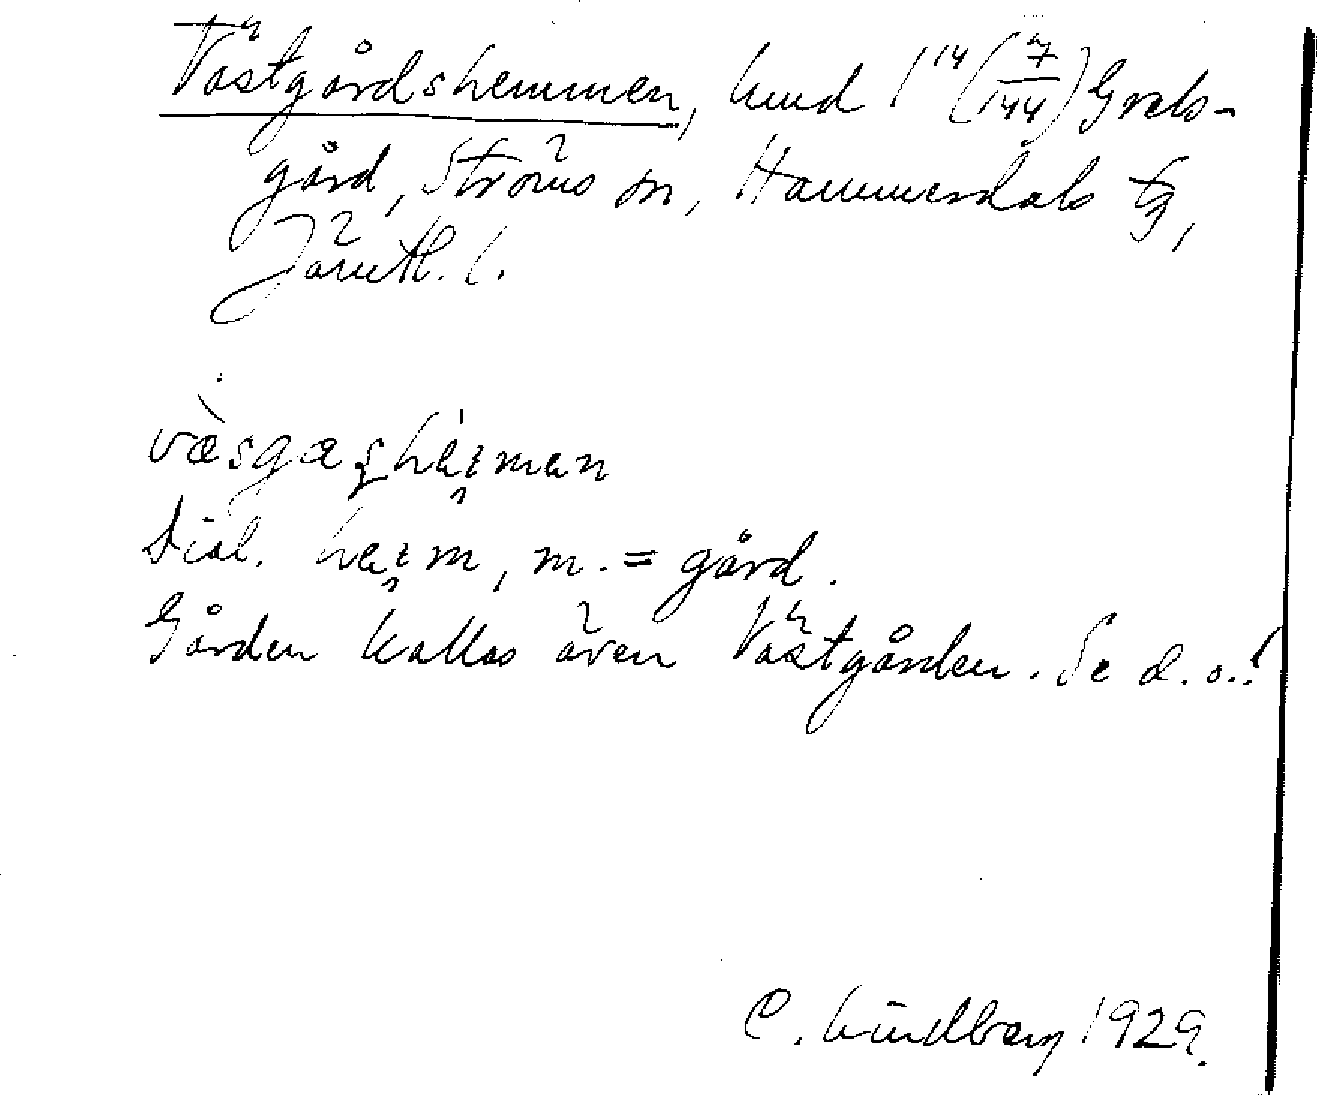 Västgårdshemmen, hmd 1¹⁴ (7/144) Grels-
gård, Ströms sn, Hammerdals tg,
Jämtl. l.
Dial. m. = gård.
Gården kallas även Västgården. Se d. o.!
C. Lindberg 1929.